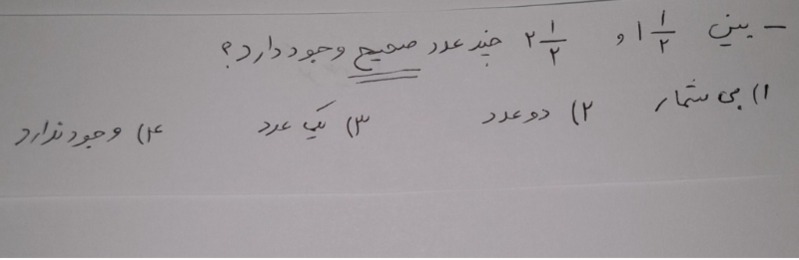 - بین ۱ ۱/۲ و ۲ ۱/۲ چند عدد صحیح وجود دارد؟
۱) بی شمار ۲) دو عدد ۳) یک عدد ۴) وجود ندارد